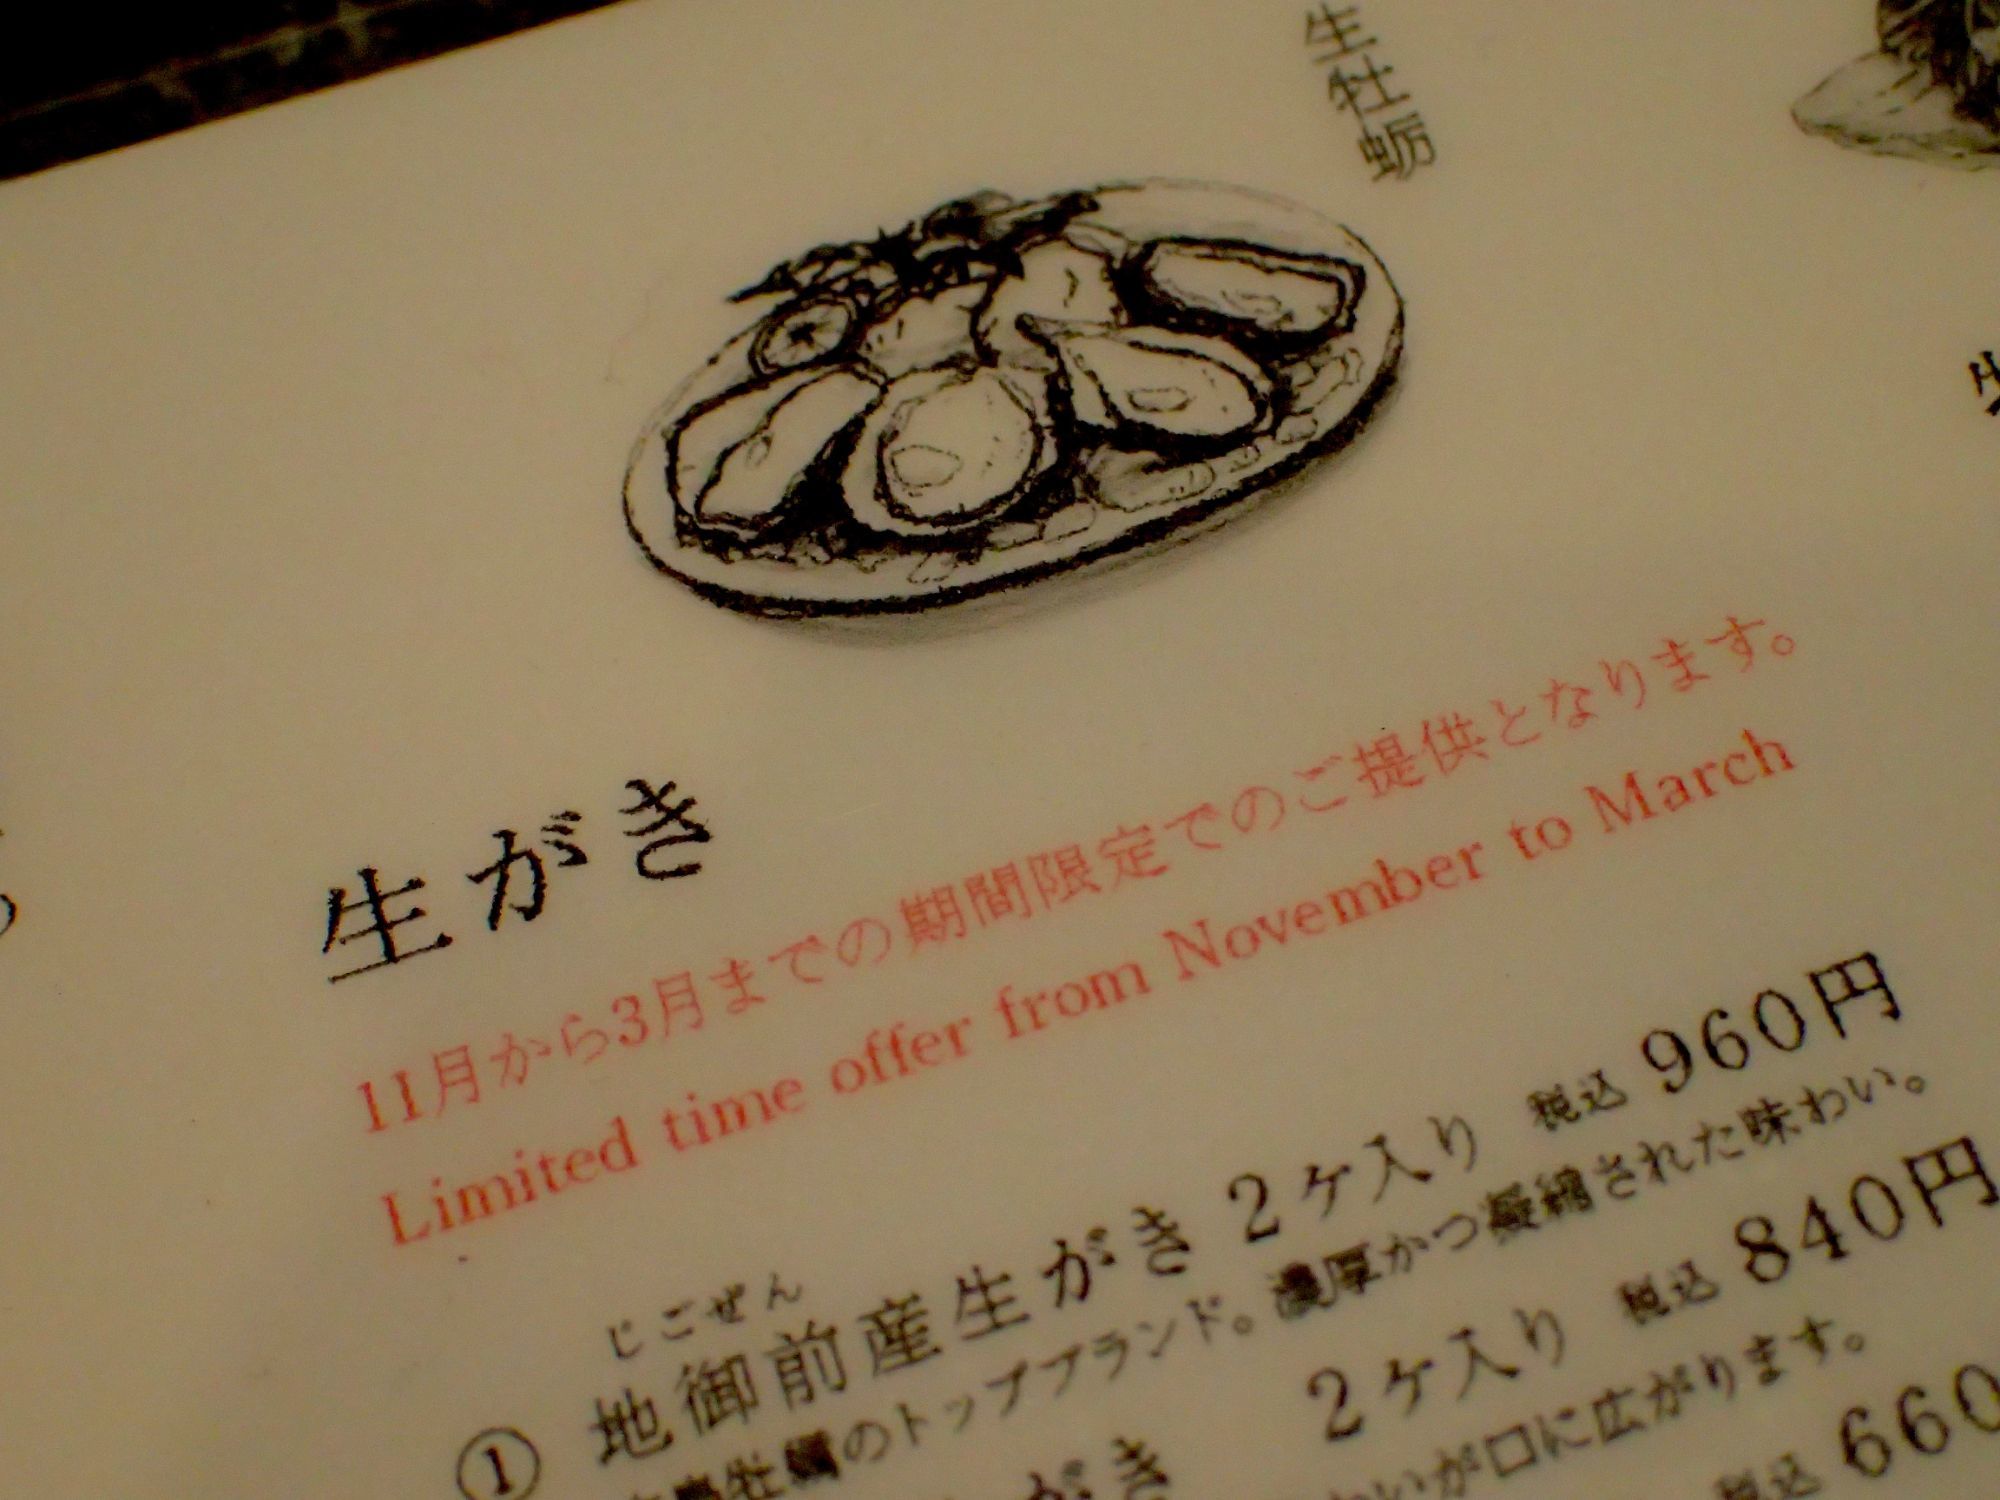 生牡蛎
生がき
11月から3月までの期間限定でのご提供となります。
Limited time offer from November to March
じごぜん
① 地御前産生がき 2ケ入り 税込 960円
牡蠣のトップブランド。濃厚かつ凝縮された味わい。
がき 2ケ入り 税込 840円
が口に広がります。
税込 660